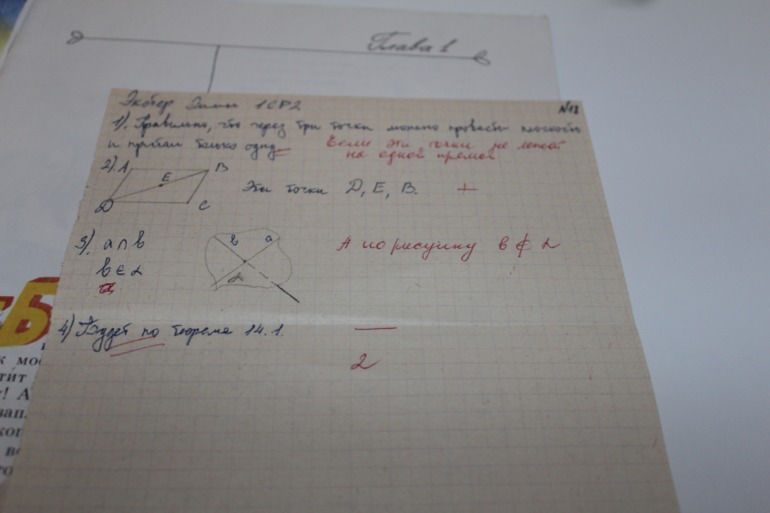 Глава 1
Экбер Элин 10Р2 №13
1). Правильно, что через три точки можно провести плоскость
и притом только одну Если эти точки не лежат
на одной прямой
2). A B
E
D C
Эти точки D, E, B. +
3). a ∩ b
b ∈ α
b a
α
А по рисунку b ∉ α
4) Будет по теорема 14.1. —
2
Б
к мо
тит
! А
зап
ког
в
то